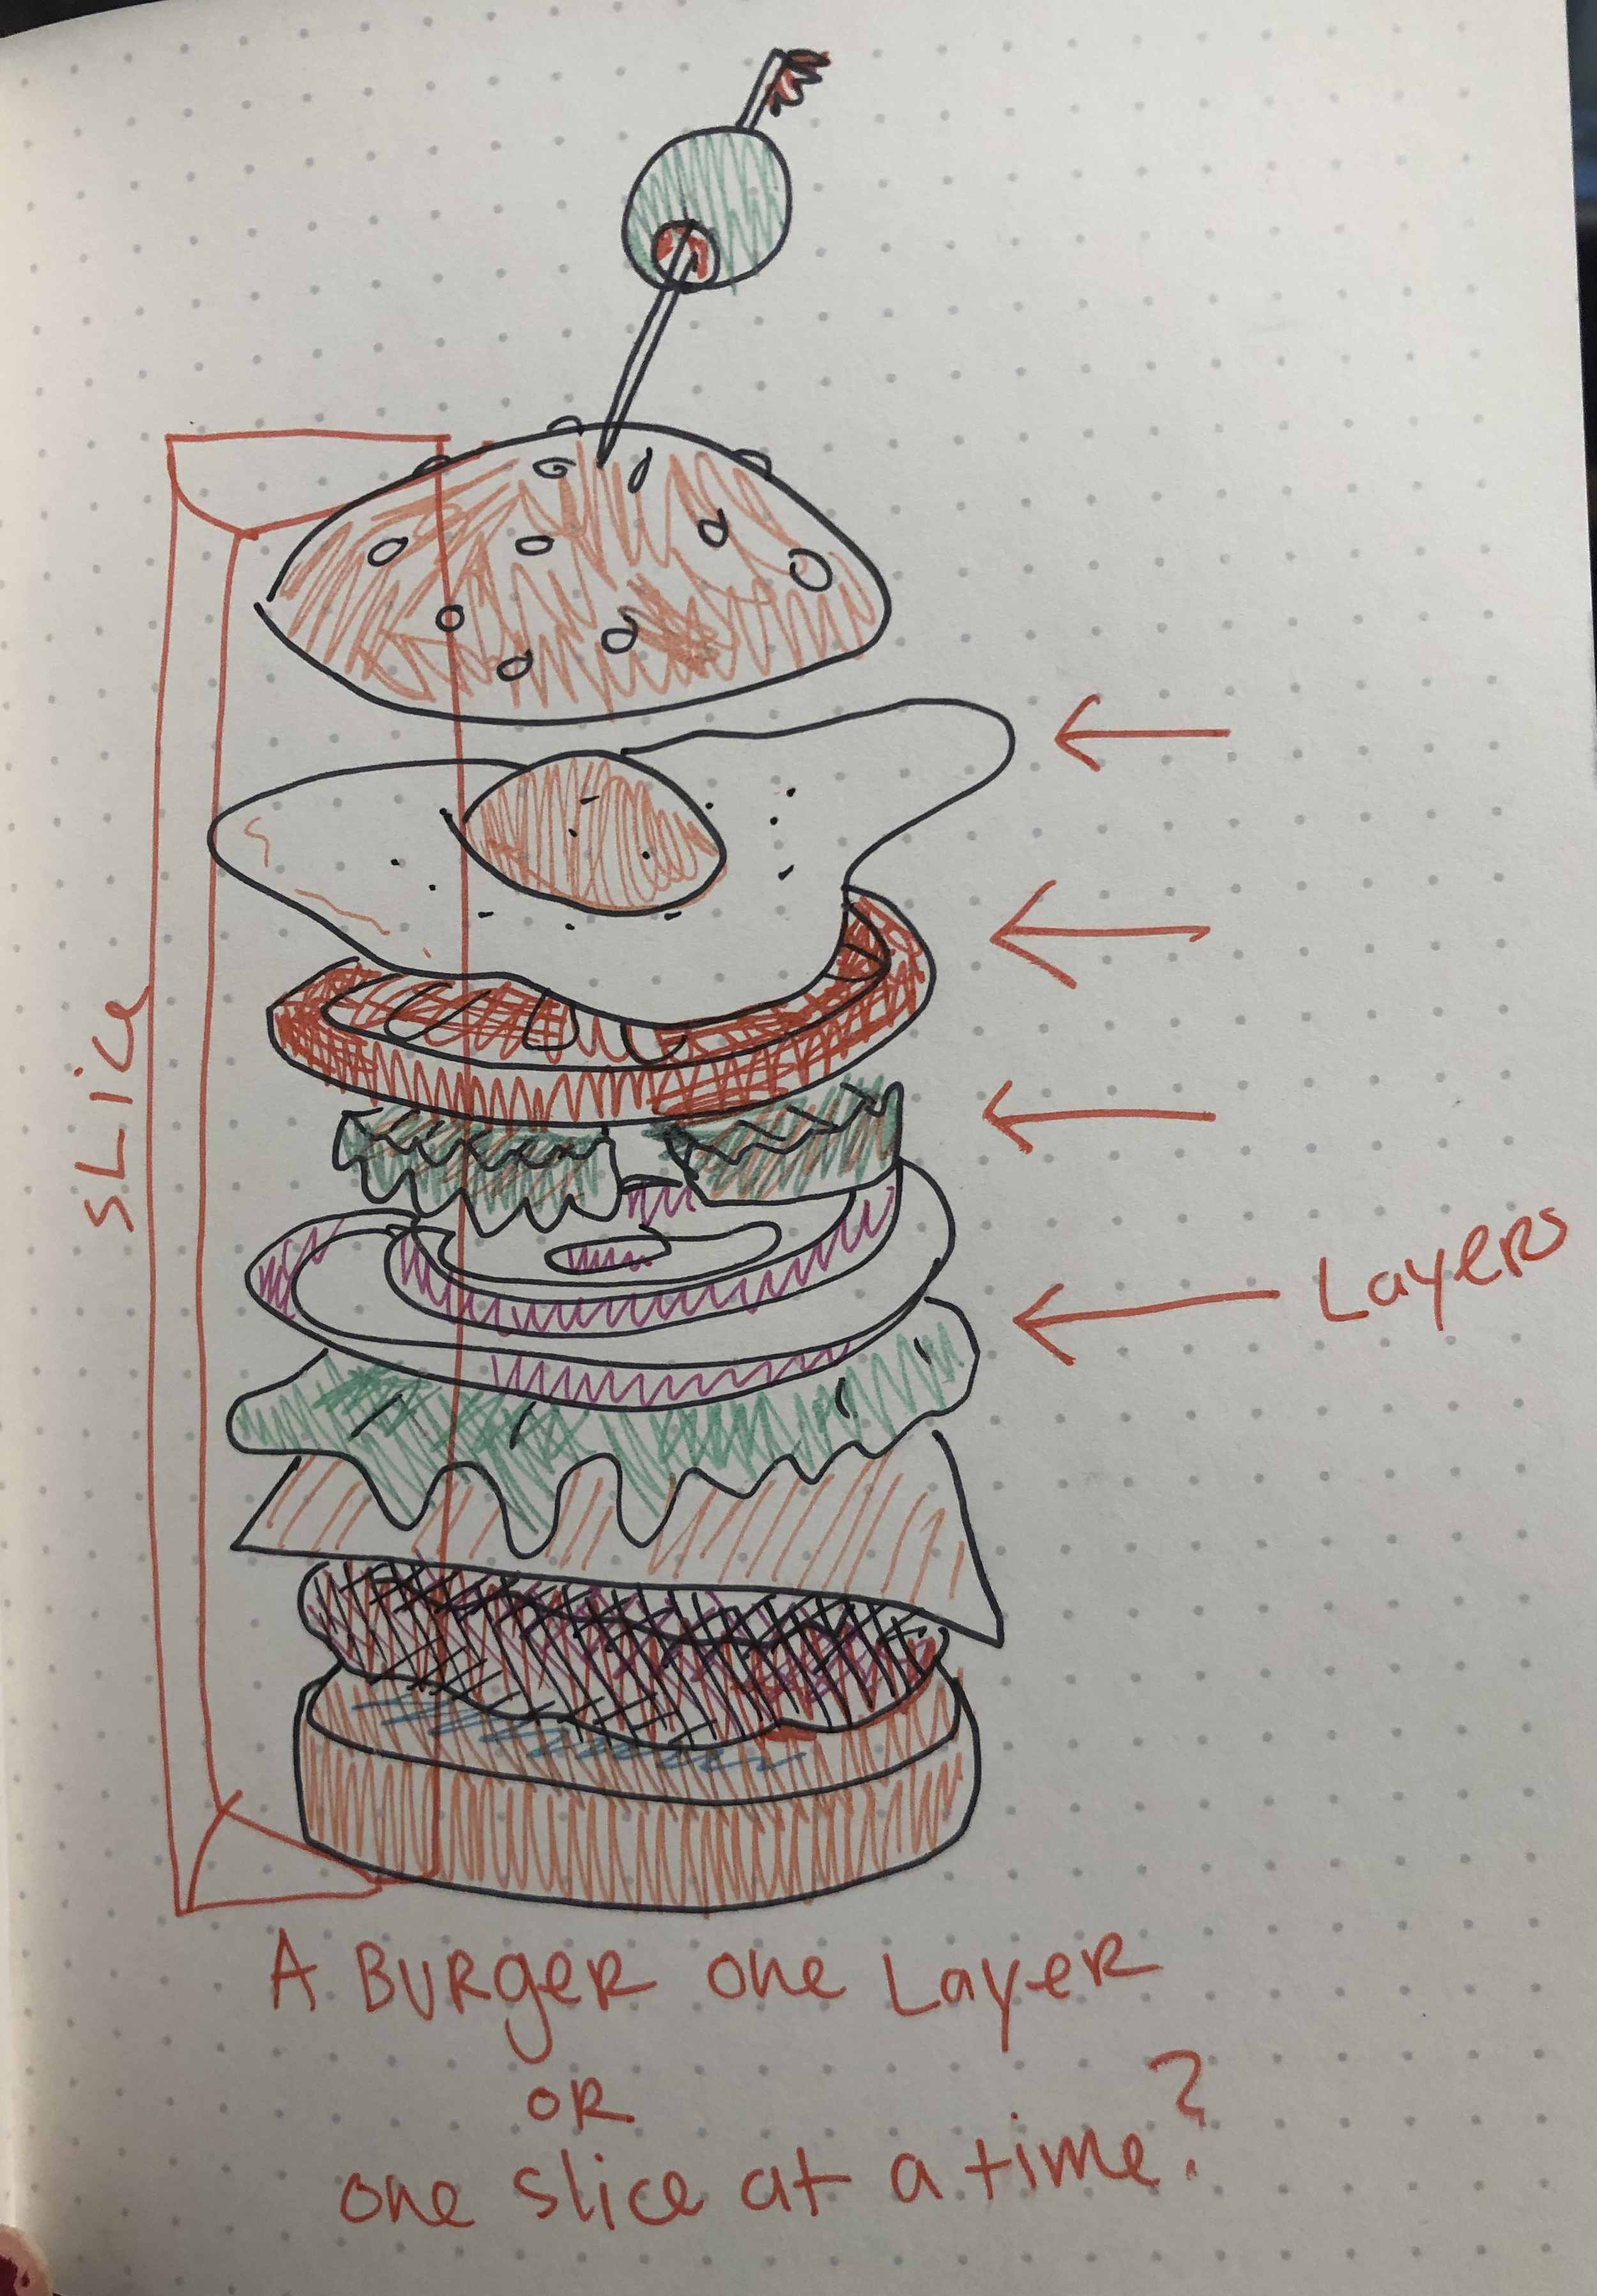 SLice
Layers
A BURgeR one LayeR
OR
one slice at a time?